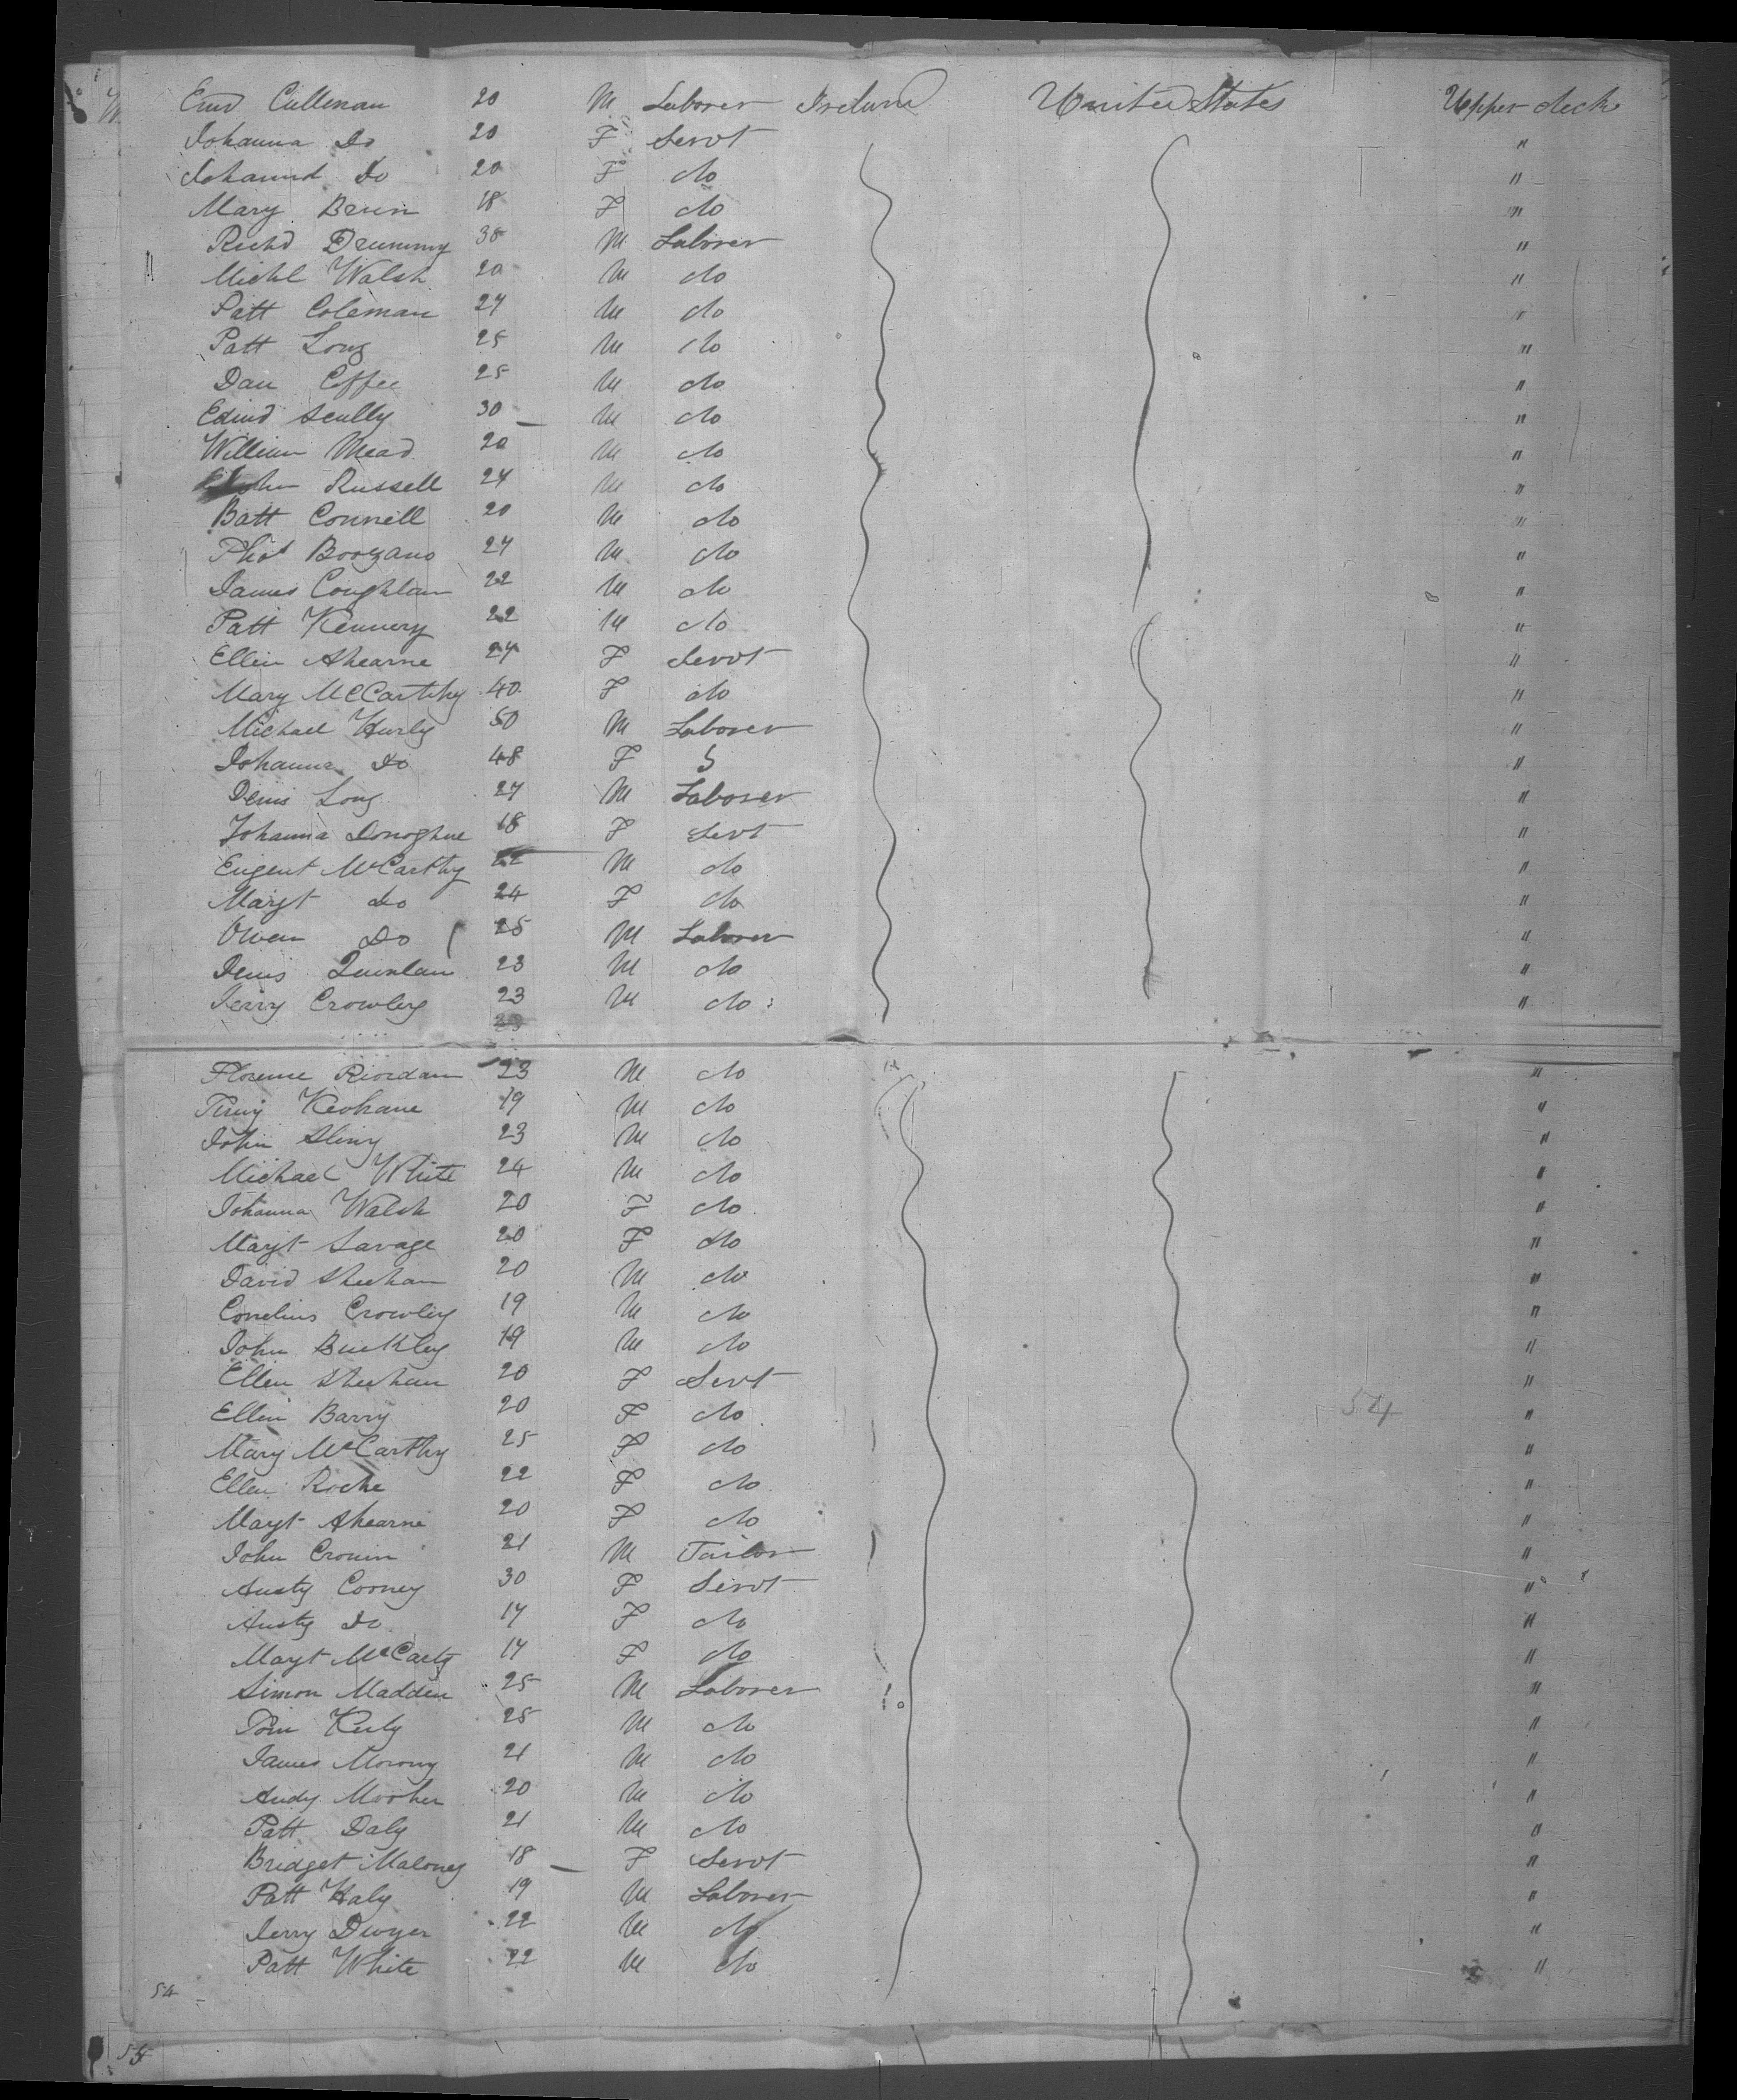 Edmd Cullinan 20 M Laborer Ireland United States Upper deck
Johanna Do 20 F Servt "
Johanna Do 20 F do "
Mary Brien 18 F do "
Richd Drummy 38 M Laborer "
Michl Walsh 20 M do "
Patt Coleman 24 M do "
Patt Long 25 M do "
Dan Coffee 25 M do "
Edmd Scully 30 M do "
William Mead 20 M do "
John Russell 24 M do "
Batt Connell 20 M do "
24 M do "
James Coughlan 22 M do "
Patt Kennery 22 M do "
Ellen Ahearne 24 F Servt "
Mary McCarthy 40 F do "
Michael Hurly 50 M Laborer "
Johanna Do 48 F "
Denis Long 24 M Laborer "
Johanna Donoghue 18 F Sevt "
Eugent McCarthy 22 M do "
Margt do 24 F do "
Owen Do 25 M Laborer "
Denis Quinlan 23 M do "
Jerry Crowley 23 M do "
Florence Riordan 23 M do "
Keohane 19 M do "
John 23 M do "
Michael White 24 M do "
Johanna Walsh 20 F do "
Margt Savage 20 F do "
David Sheehan 20 M do "
Cornelius Crowley 19 M do "
John Buckley 19 M do "
Ellen Sheehan 20 F Sevt "
Ellen Barry 20 F do 54 "
Mary McCarthy 25 F do "
Ellen Roche 22 F do "
Margt Ahearne 20 F do "
John Cronin 21 M Tailor "
Austy Cooney 30 F Servt "
Austy Do 17 F do "
Margt McCarty 17 F do "
Simon Madden 25 M Laborer "
Tom 25 M do "
James Morony 21 M do "
Andy 20 M do "
Patt Daly 21 M do "
Bridget Maloney 18 F Servt "
Patt Haly 19 M Laborer "
Jerry Dwyer 22 M do "
Patt White 22 M do "
54